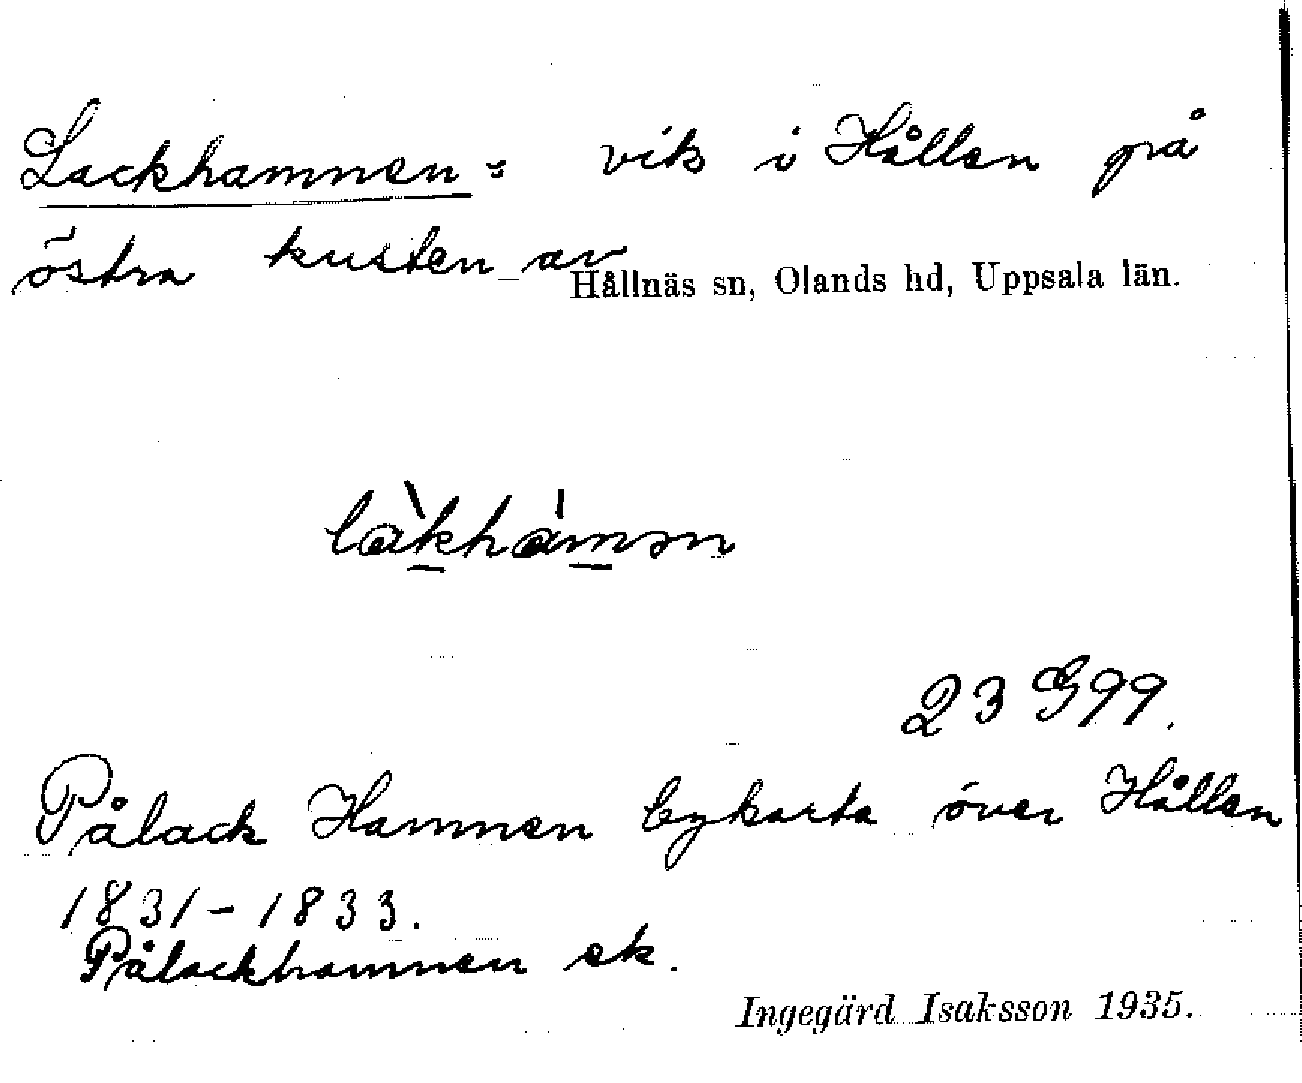 Lackhamnen = vik i Hållen på
östra kusten av
Hållnäs sn, Olands hd, Uppsala län.
làkhámən
23 G 99.
Pålack Hamnen bykarta över Hållen
1831-1833.
Pålackhamnen ek.
Ingegärd Isaksson 1935.